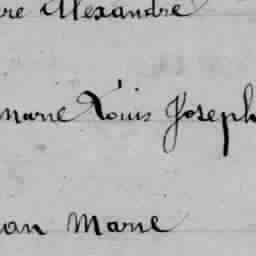 re Alexandre
marie Louis Joseph
an Marie